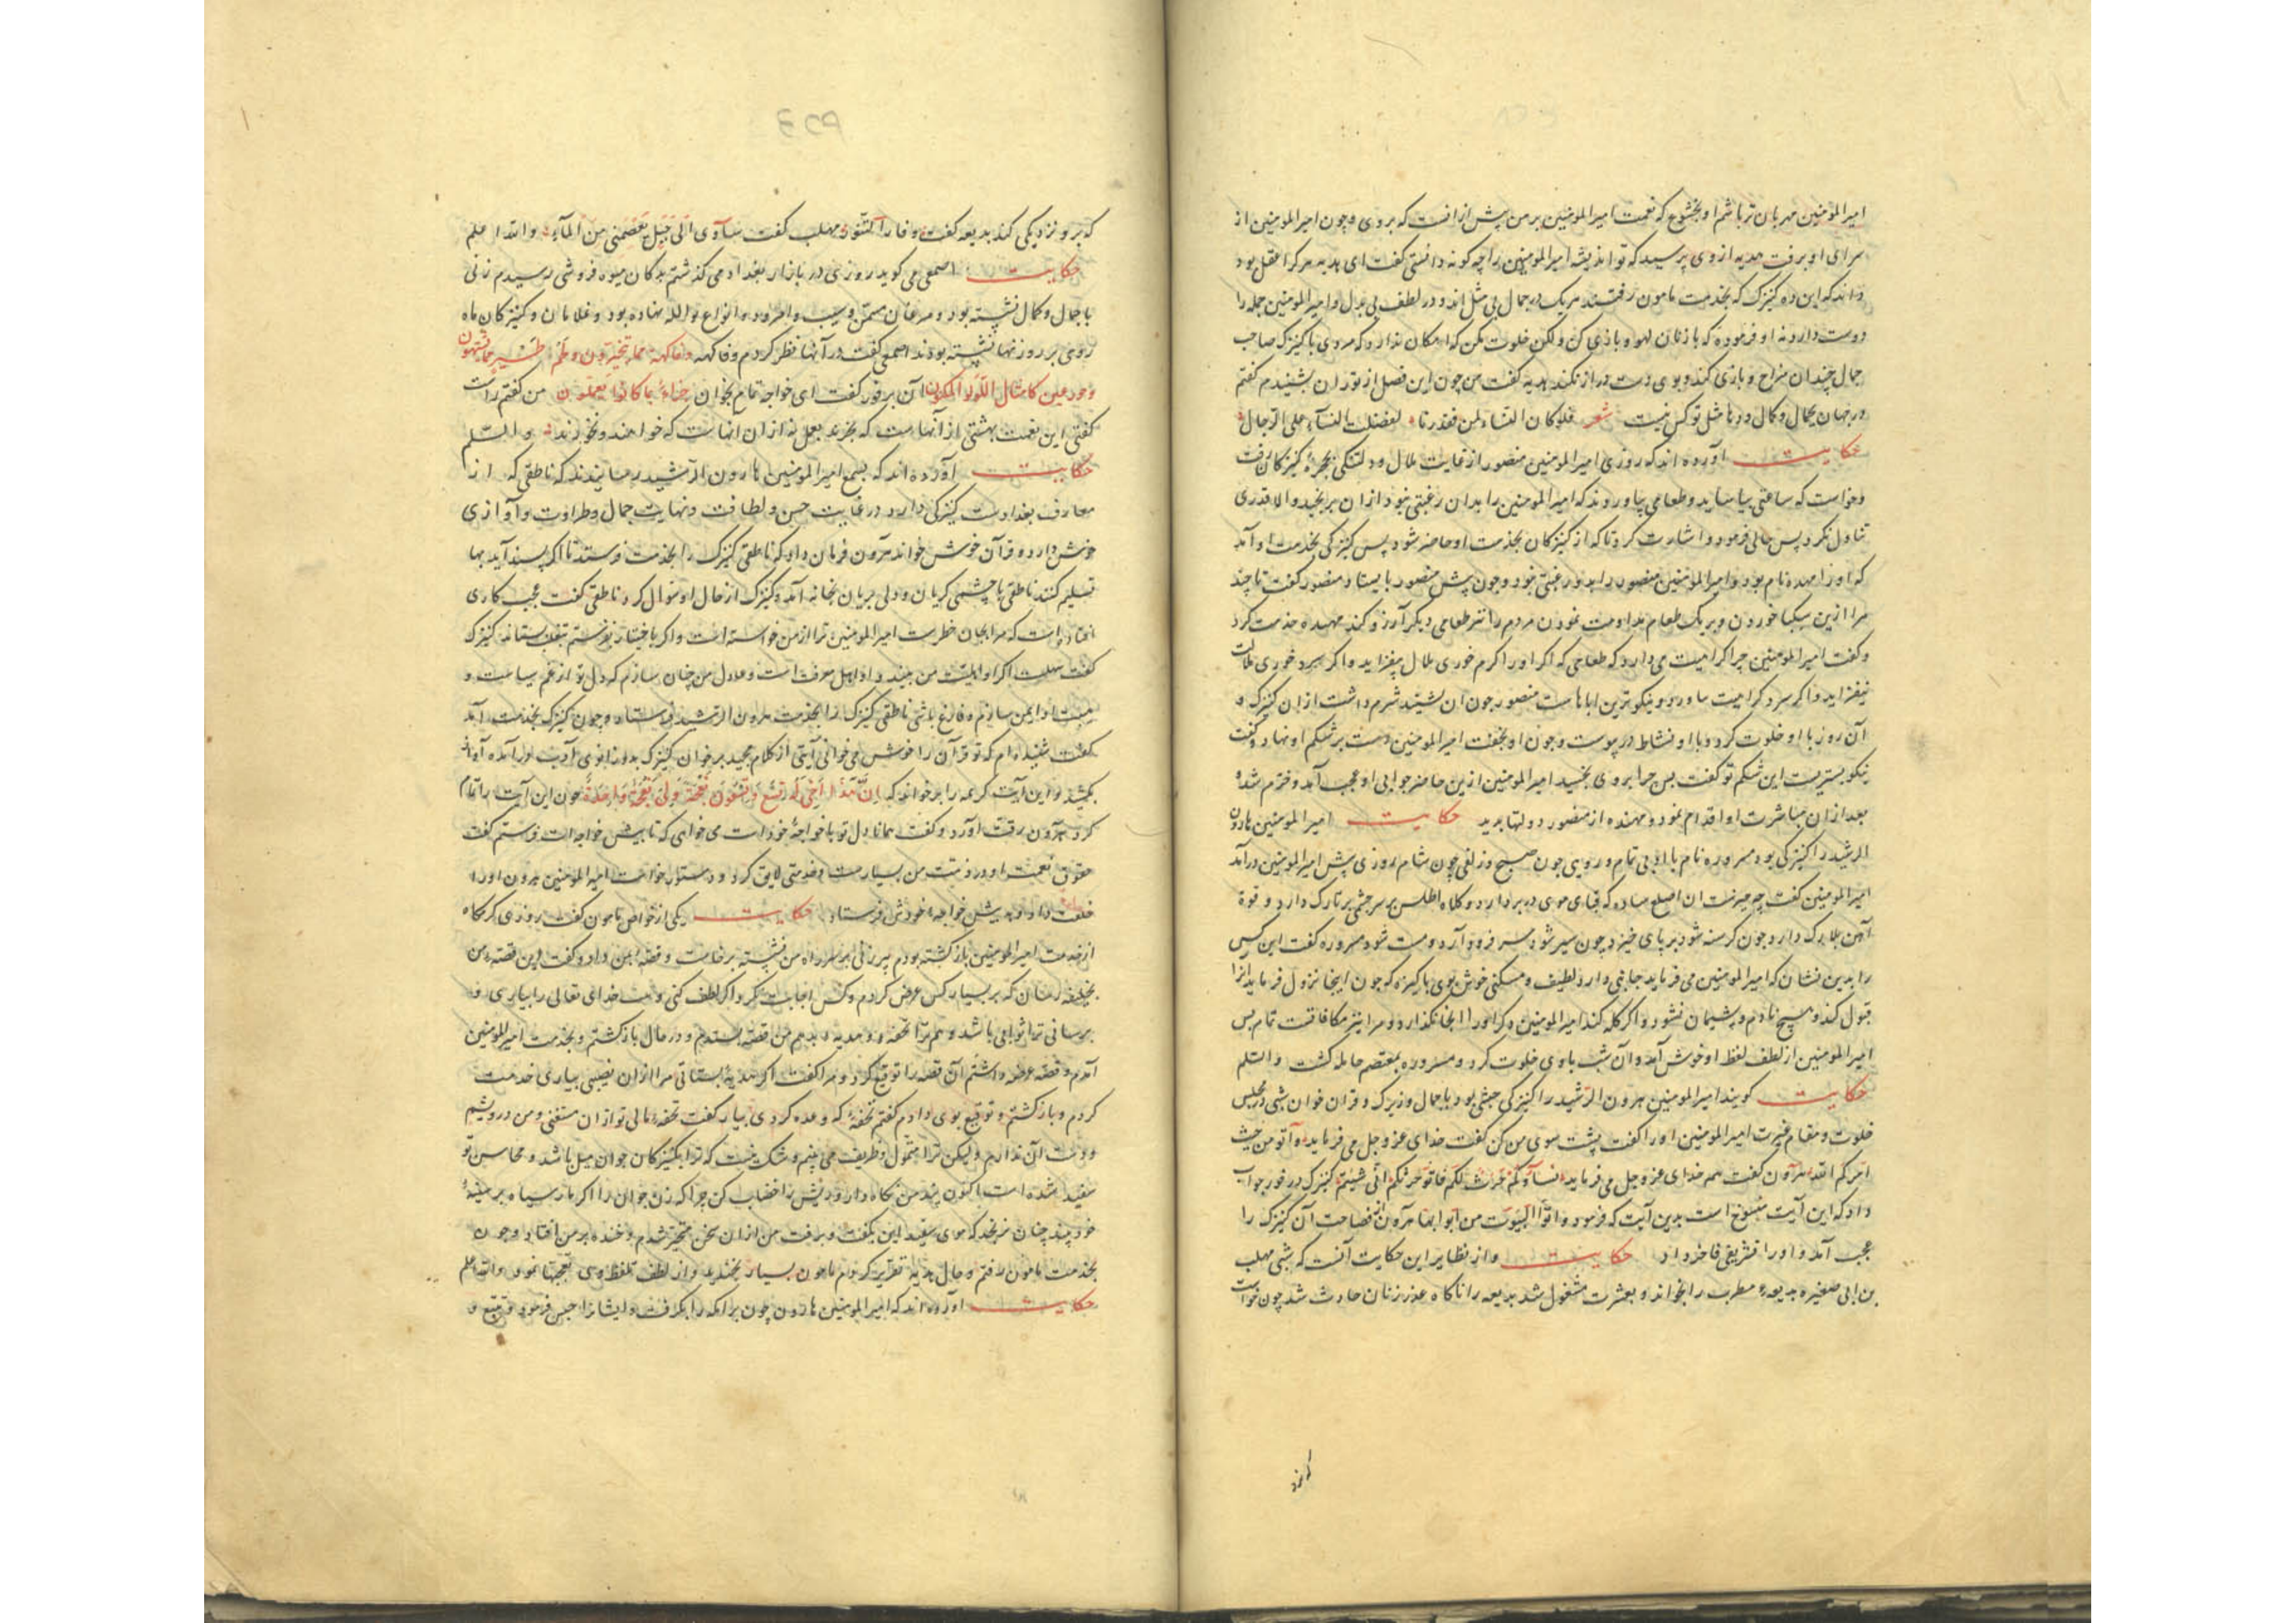 امیرالمؤمنین مهربان تر باشم او بخشوع که نعمت امیرالمومنین بر من پیش ازانست که بروی و چون امیرالمومنین از
سرای او برفت هدیه ازوی پرسید که تو اندیشه امیرالمومنین را چه کونه دانستی کفت ای هدیه هرکرا عقل بود
داند که این ده کنیزک که بخدمت مامون رفتند هریک در جمال بی مثل اند و در لطف بی بدل و امیرالمومنین جمله را
دوست دارد نه او فرموده که با زنان لهو و بازی کن ولکن خلوت مکن که امکان ندارد که مردی با کنیزک صاحب
جمال چندان مزاح و بازی کند و بوی دست دراز نکند هدیه کفت من چون این فصل از توران بشنیدم کفتم
در جهان بجمال و کمال و دها مثل تو کس نیست شعر فلو کان النساء لمن فقدنا لفضلت النسآء علی الرجال
حکایت آورده اند که روزی امیرالمومنین منصور از غایت ملال و دلتنکی بحجرهٔ کنیزکان رفت
و خواست که ساعتی بیاساید و طعامی بیاوردند که امیرالمومنین را بدان رغبتی نبود ازان برنجید والا قدری
تناول نکرد پس حالی فرمود و اشارت کرد تا که از کنیزکان بخدمت او حاضر شود پس کنیزکی بخدمت او آمد
که اورا مهده نام بود و امیرالمومنین منصور را بدو رغبتی بود و چون پیش منصور بایستاد منصور کفت تا چند
مرا ازین سکبا خوردن و بر یک طعام مداومت نمودن مردم را نیز طعامی دیکر آرزو کند مهده خدمت کرد
و کفت امیرالمومنین چرا کراهیت می دارد که طعامی که اکر اورا کرم خوری ملال نیفزاید و اکر سرد خوری ملالت
نیفزاید و اکر سرد کراهیت ساورد و نیکوترین اباهاست منصور چون ان بشنید شرم داشت ازان کنیزک و
آن روز با او خلوت کرد و با او نشاط در پوست و چون او بخفت امیرالمومنین دست بر شکم او نهاد و کفت
نیکو بستریست این شکم تو کفت پس چرا بروی نخسپد امیرالمومنین ازین حاضر جوابی او عجب آمد و خرم شد و
بعد ازان مباشرت او اقدام نمود و مهنده از منصور دولتها بدید حکایت امیرالمومنین هارون
الرشید را کنیزکی بود مسروره نام با ادبی تمام و رویی چون صبح و زلفی چون شام روزی پیش امیرالمومنین درآمد
امیرالمومنین کفت چه چیزست ان اصلع ساده که قبای موی در بر دارد و کلاه اطلس بر سر چشمی بر تارک دارد و قوة
آهن بلارک دارد چون کرسنه شود برپای خیزد و چون سیر شود سر فرود آرد و مست شود مسروره کفت این کس
را بدین نشان که امیرالمومنین می فرماید جایی دارد لطیف و مسکنی خوش بوی پاکیزه که چون اینجا نزول فرماید انرا
قبول کند و هیچ نادم و پشیمان نشود و اکر کله کند امیرالمومنین دکر اورا انجا نکذارد و مرا نیز مکافاتست تمام پس
امیرالمومنین از لطف لفظ او خوش آمد و آن شب باوی خلوت کرد و مسروره بمعتصم حامله کشت والسلم
حکایت کویند امیرالمومنین هرون الرشید را کنیزکی حبشی بود با جمال و زیرک و قران خوان شبی در مجلس
خلوت و مقام غیرت امیرالمومنین اورا کفت پشت سوی من کن کفت خدای عز و جل می فرماید و آتو من حیث
امرکم الله هرون کفت هم خدای عز و جل می فرماید نسآؤکم حرث لکم فاتو حرثکم انی شیٔتم کنیزک در فور جواب
داد که این آیت منسوخ است بدین آیت که فرمود و اتوا البیوت من ابوابها هرون از فصاحت آن کنیزک را
عجب آمد و اورا تشریفی فاخر داد حکایت و از نظایر این حکایت آنست که شبی مهلب
بن ابی صغیره بدیعهٔ مطرب را بخواند و بعشرت مشغول شد بدیعه را ناکاه عذر زنان حادث شد چون خواست
که برو نزدیکی کند بدیعه کفت وفار التنور مهلب کفت سآوی الی جبل یعصمنی من المآء والله اعلم
حکایت اصمعی می کوید روزی در بازار بغداد می کذشتم بدکان میوه فروشی رسیدم زنی
با جمال و کمال نشسته بود و مرغان مسمن و سیب و امرود و انواع فواکه نهاده بود و غلامان و کنیزکان ماه
روی بر روزنها نشسته بودند اصمعی کفت در آنها نظر کردم وفاکهه وفاکهة مما یتخیرون ولحم طیر مما یشتهون
وحور عین کامثال اللؤلؤ المکنون آن بر فور کفت ای خواجه تمام بخوان جزاء بما کانوا یعملون من کفتم راست
کفتی این نعمت بهشتی از آنهاست که بخرند بعمل نه ازان انهاست که خواهند و نخورند والسلم
حکایت آورده اند که بسمع امیرالمومنین هارون الرشید رسانیدند که ناطقی که از
معارف بغدادست کنیزکی دارد در غایت حسن و لطافت و نهایت جمال و طراوت و آوازی
خوش دارد و قرآن خوش خواند هرون فرمان داد که ناطقی کنیزک را بخدمت فرستد تا اکر پسند آید بها
تسلیم کنند ناطقی با چشمی کریان و دلی بریان بخانه آمد و کنیزک از حال او سوال کرد ناطقی کفت عجب کاری
افتاده است که مرا بجان خطرست امیرالمومنین ترا از من خواسته است و اکر باختیار نفرستم بتغلب بستاند کنیزک
کفت سهلست اکر او اهلیت من بیند و او اهل معرفت است و عادل من چنان سازم که دل تو از غم سیاست و
هیبت او ایمن سازم و فارغ باشی ناطقی کنیزک را بخدمت هرون الرشید فرستاد و چون کنیزک بخدمت آمد
کفت شنیده ام که تو قرآن را خوش می خوانی آیتی از کلام مجید برخوان کنیزک بدو زانوی ادب درآمد و آواز
بکشید و این آیت کریمه را برخواند که ان هذا اخی له تسع وتسعون نعجة ولی نعجة واحدة چون این آیت را تمام
کرد هرون رقت آورد و کفت همانا دل تو با خواجهٔ خودست می خواهی که تا بپیش خواجه ات فرستم کفت
حقوق نعمت او و تربیت من بسیارست و خدمتی لایق کرد و دستوری خواست امیرالمومنین هرون اورا
خلعت داد و بپیش خواجهٔ خودش فرستاد حکایت یکی از خواص مامون کفت روزی کرمکاه
از خدمت امیرالمومنین بازکشته بودم پیرزنی بر سر راه من نشسته برخاست و قصهٔ بمن داد و کفت این قصهٔ من
بخلیفه رسان که بر بسیار کس عرض کردم و کس اجابت نکرد اکر لطف کنی و هست خدای تعالی را بیاری و
برسانی ترا ثوابی باشد و هم ترا تحفه و هدیه بدهم من قصه بستدم و در حال بازکشتم و بخدمت امیرالمومنین
آمدم و قصه عرضه داشتم آن قصه را توقیع کرد و مرا کفت اکر هدیهٔ بستانی مرا ازان نصیبی بیاری خدمت
کردم و بازکشتم و توقیع بوی دادم کفتم تحفهٔ که وعده کردی بیار کفت تحفهٔ مالی تو ازان مستغنی و من درویشم
و دست آن ندارم ولیکن ترا متمول و ظریف می بینم و شک نیست که ترا بکنیزکان جوان میل باشد و محاسن تو
سفید شده است اکنون پند من نکاه دار و ریش را خضاب کن چرا که زن جوان را اکر مار سیاه بر سینهٔ
خود بیند چنان نرنجد که موی سفید این بکفت و برفت من ازان سخن متحیر شدم و خنده بر من افتاد و چون
بخدمت مامون رفتم و حال هدیه تقریر کردم مامون بسیار بخندید و از لطف تلفظ وی تعجبها نمود والله اعلم
حکایت آورده اند که امیرالمومنین هارون چون برامکه را بکرفت و ایشانرا حبس فرمود و تتبع و